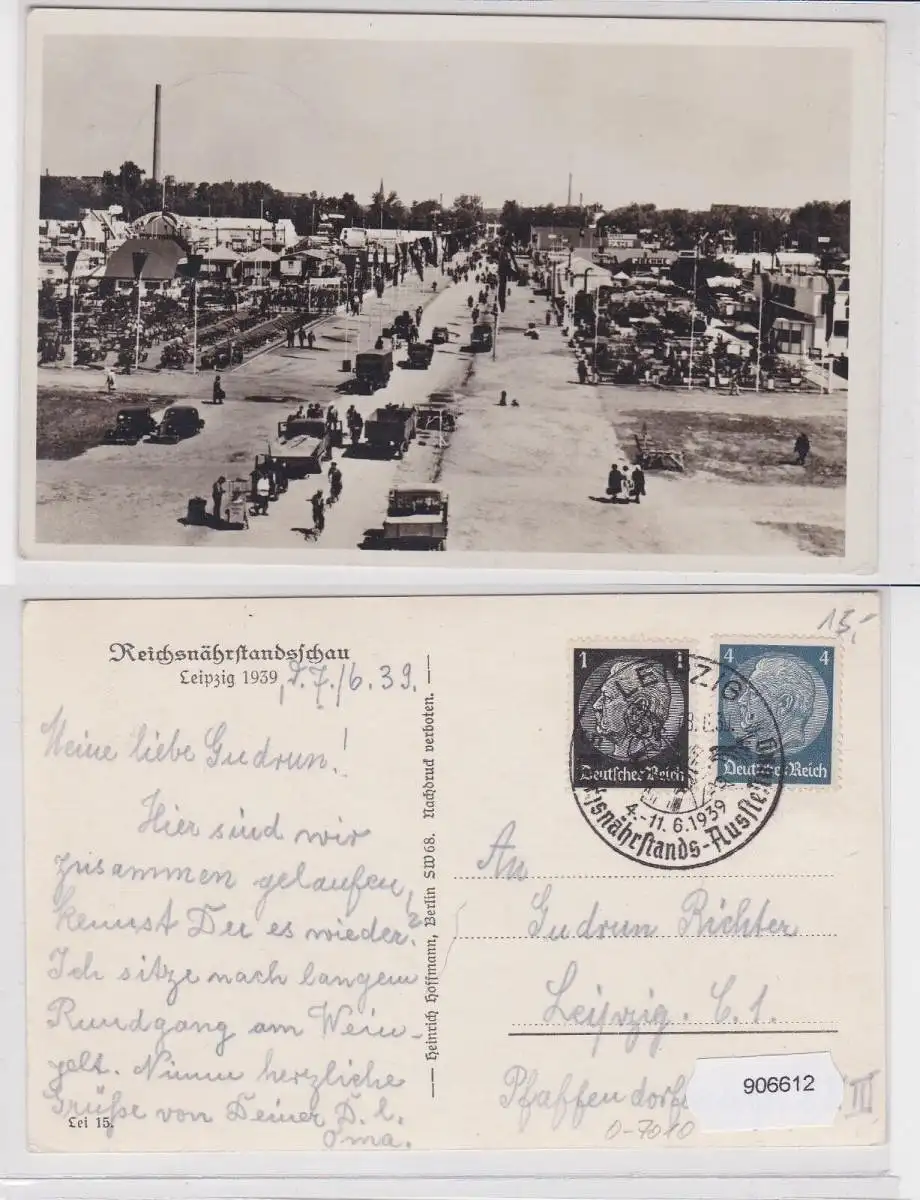 Reichsnährstandsschau
Leipzig 1939, d. 7./6.39.
Meine liebe Gudrun!
Hier sind wir
zusammen gelaufen,
kennst Du es wieder?
Ich sitze nach langem
Rundgang am Wein-
zelt. Nimm herzliche
Grüße von Deiner D. l.
Oma.
Lei 15.
Heinrich Hoffmann, Berlin SW 68. Nachdruck verboten.
15,-
1 1
Deutsches Reich
4 4
Deutsches Reich
LEIPZIG
4.-11.6.1939
Reichsnährstands-Ausstellung
An
Gudrun Richter
Leipzig. C.1.
Pfaffendorf
III
0-7010
906612